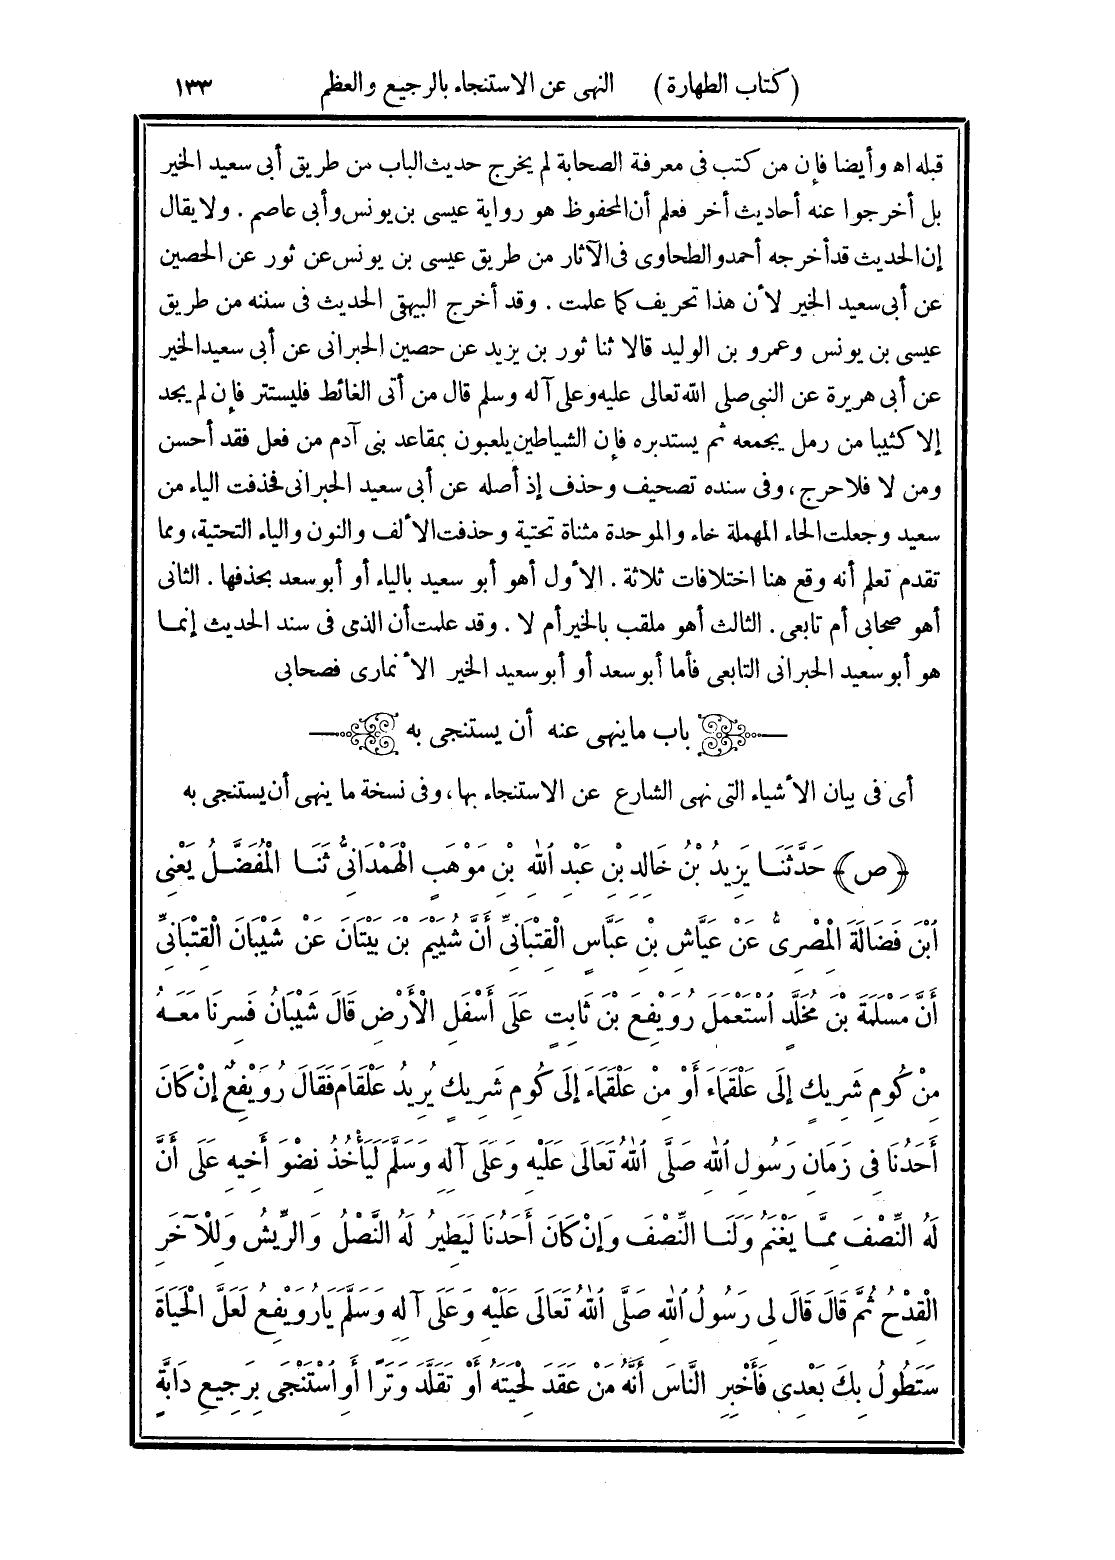 (كتاب الطهارة) النهى عن الاستنجاء بالرجيع والعظم ١٣٣
قبله اه وأيضا فإن من كتب فى معرفة الصحابة لم يخرج حديث الباب من طريق أبى سعيد الخير
بل أخرجوا عنه أحاديث أخر فعلم أن المحفوظ هو رواية عيسى بن يونس وأبى عاصم . ولا يقال
إن الحديث قد أخرجه أحمد والطحاوى فى الآثار من طريق عيسى بن يونس عن ثور عن الحصين
عن أبى سعيد الخير لأن هذا تحريف كما علمت . وقد أخرج البيهقى الحديث فى سننه من طريق
عيسى بن يونس وعمرو بن الوليد قالا ثنا ثور بن يزيد عن حصين الحبرانى عن أبى سعيد الخير
عن أبى هريرة عن النبى صلى الله تعالى عليه وعلى آله وسلم قال من أتى الغائط فليستتر فإن لم يجد
إلا كثيبا من رمل يجمعه ثم يستدبره فإن الشياطين يلعبون بمقاعد بنى آدم من فعل فقد أحسن
ومن لا فلا حرج، وفى سنده تصحيف وحذف إذ أصله عن أبى سعيد الحبرانى فحذفت الياء من
سعيد وجعلت الحاء المهملة خاء والموحدة مثناة تحتية وحذفت الألف والنون والياء التحتية، ومما
تقدم تعلم أنه وقع هنا اختلافات ثلاثة . الأول أهو أبو سعيد بالياء أو أبو سعد بحذفها . الثانى
أهو صحابى أم تابعى . الثالث أهو ملقب بالخير أم لا . وقد علمت أن الذى فى سند الحديث إنما
هو أبو سعيد الحبرانى التابعى فأما أبو سعد أو أبو سعيد الخير الأنمارى فصحابى
باب ما ينهى عنه أن يستنجى به
أى فى بيان الأشياء التى نهى الشارع عن الاستنجاء بها، وفى نسخة ما ينهى أن يستنجى به
(ص) حَدَّثَنَا يَزِيدُ بْنُ خَالِدِ بْنِ عَبْدِ اللهِ بْنِ مَوْهَبٍ الْهَمْدَانِىُّ ثَنَا الْمُفَضَّلُ يَعْنِى
ابْنَ فَضَالَةَ الْمِصْرِىُّ عَنْ عَيَّاشِ بْنِ عَبَّاسٍ الْقِتْبَانِىِّ أَنَّ شُيَيْمَ بْنَ بَيْتَانَ عَنْ شَيْبَانَ الْقِتْبَانِىِّ
أَنَّ مَسْلَمَةَ بْنَ مُخَلَّدٍ اسْتَعْمَلَ رُوَيْفِعَ بْنَ ثَابِتٍ عَلَى أَسْفَلِ الْأَرْضِ قَالَ شَيْبَانُ فَسِرْنَا مَعَهُ
مِنْ كُومِ شَرِيكٍ إِلَى عَلْقَمَاءَ أَوْ مِنْ عَلْقَمَاءَ إِلَى كُومِ شَرِيكٍ يُرِيدُ عَلْقَامَ فَقَالَ رُوَيْفِعٌ إِنْ كَانَ
أَحَدُنَا فِى زَمَانِ رَسُولِ اللهِ صَلَّى اللهُ تَعَالَى عَلَيْهِ وَعَلَى آلِهِ وَسَلَّمَ لَيَأْخُذُ نِضْوَ أَخِيهِ عَلَى أَنَّ
لَهُ النِّصْفَ مِمَّا يَغْنَمُ وَلَنَا النِّصْفَ وَإِنْ كَانَ أَحَدُنَا لَيَطِيرُ لَهُ النَّصْلُ وَالرِّيشُ وَلِلْآخَرِ
الْقِدْحُ ثُمَّ قَالَ قَالَ لِى رَسُولُ اللهِ صَلَّى اللهُ تَعَالَى عَلَيْهِ وَعَلَى آلِهِ وَسَلَّمَ يَا رُوَيْفِعُ لَعَلَّ الْحَيَاةَ
سَتَطُولُ بِكَ بَعْدِى فَأَخْبِرِ النَّاسَ أَنَّهُ مَنْ عَقَدَ لِحْيَتَهُ أَوْ تَقَلَّدَ وَتَرًا أَوِ اسْتَنْجَى بِرَجِيعِ دَابَّةٍ